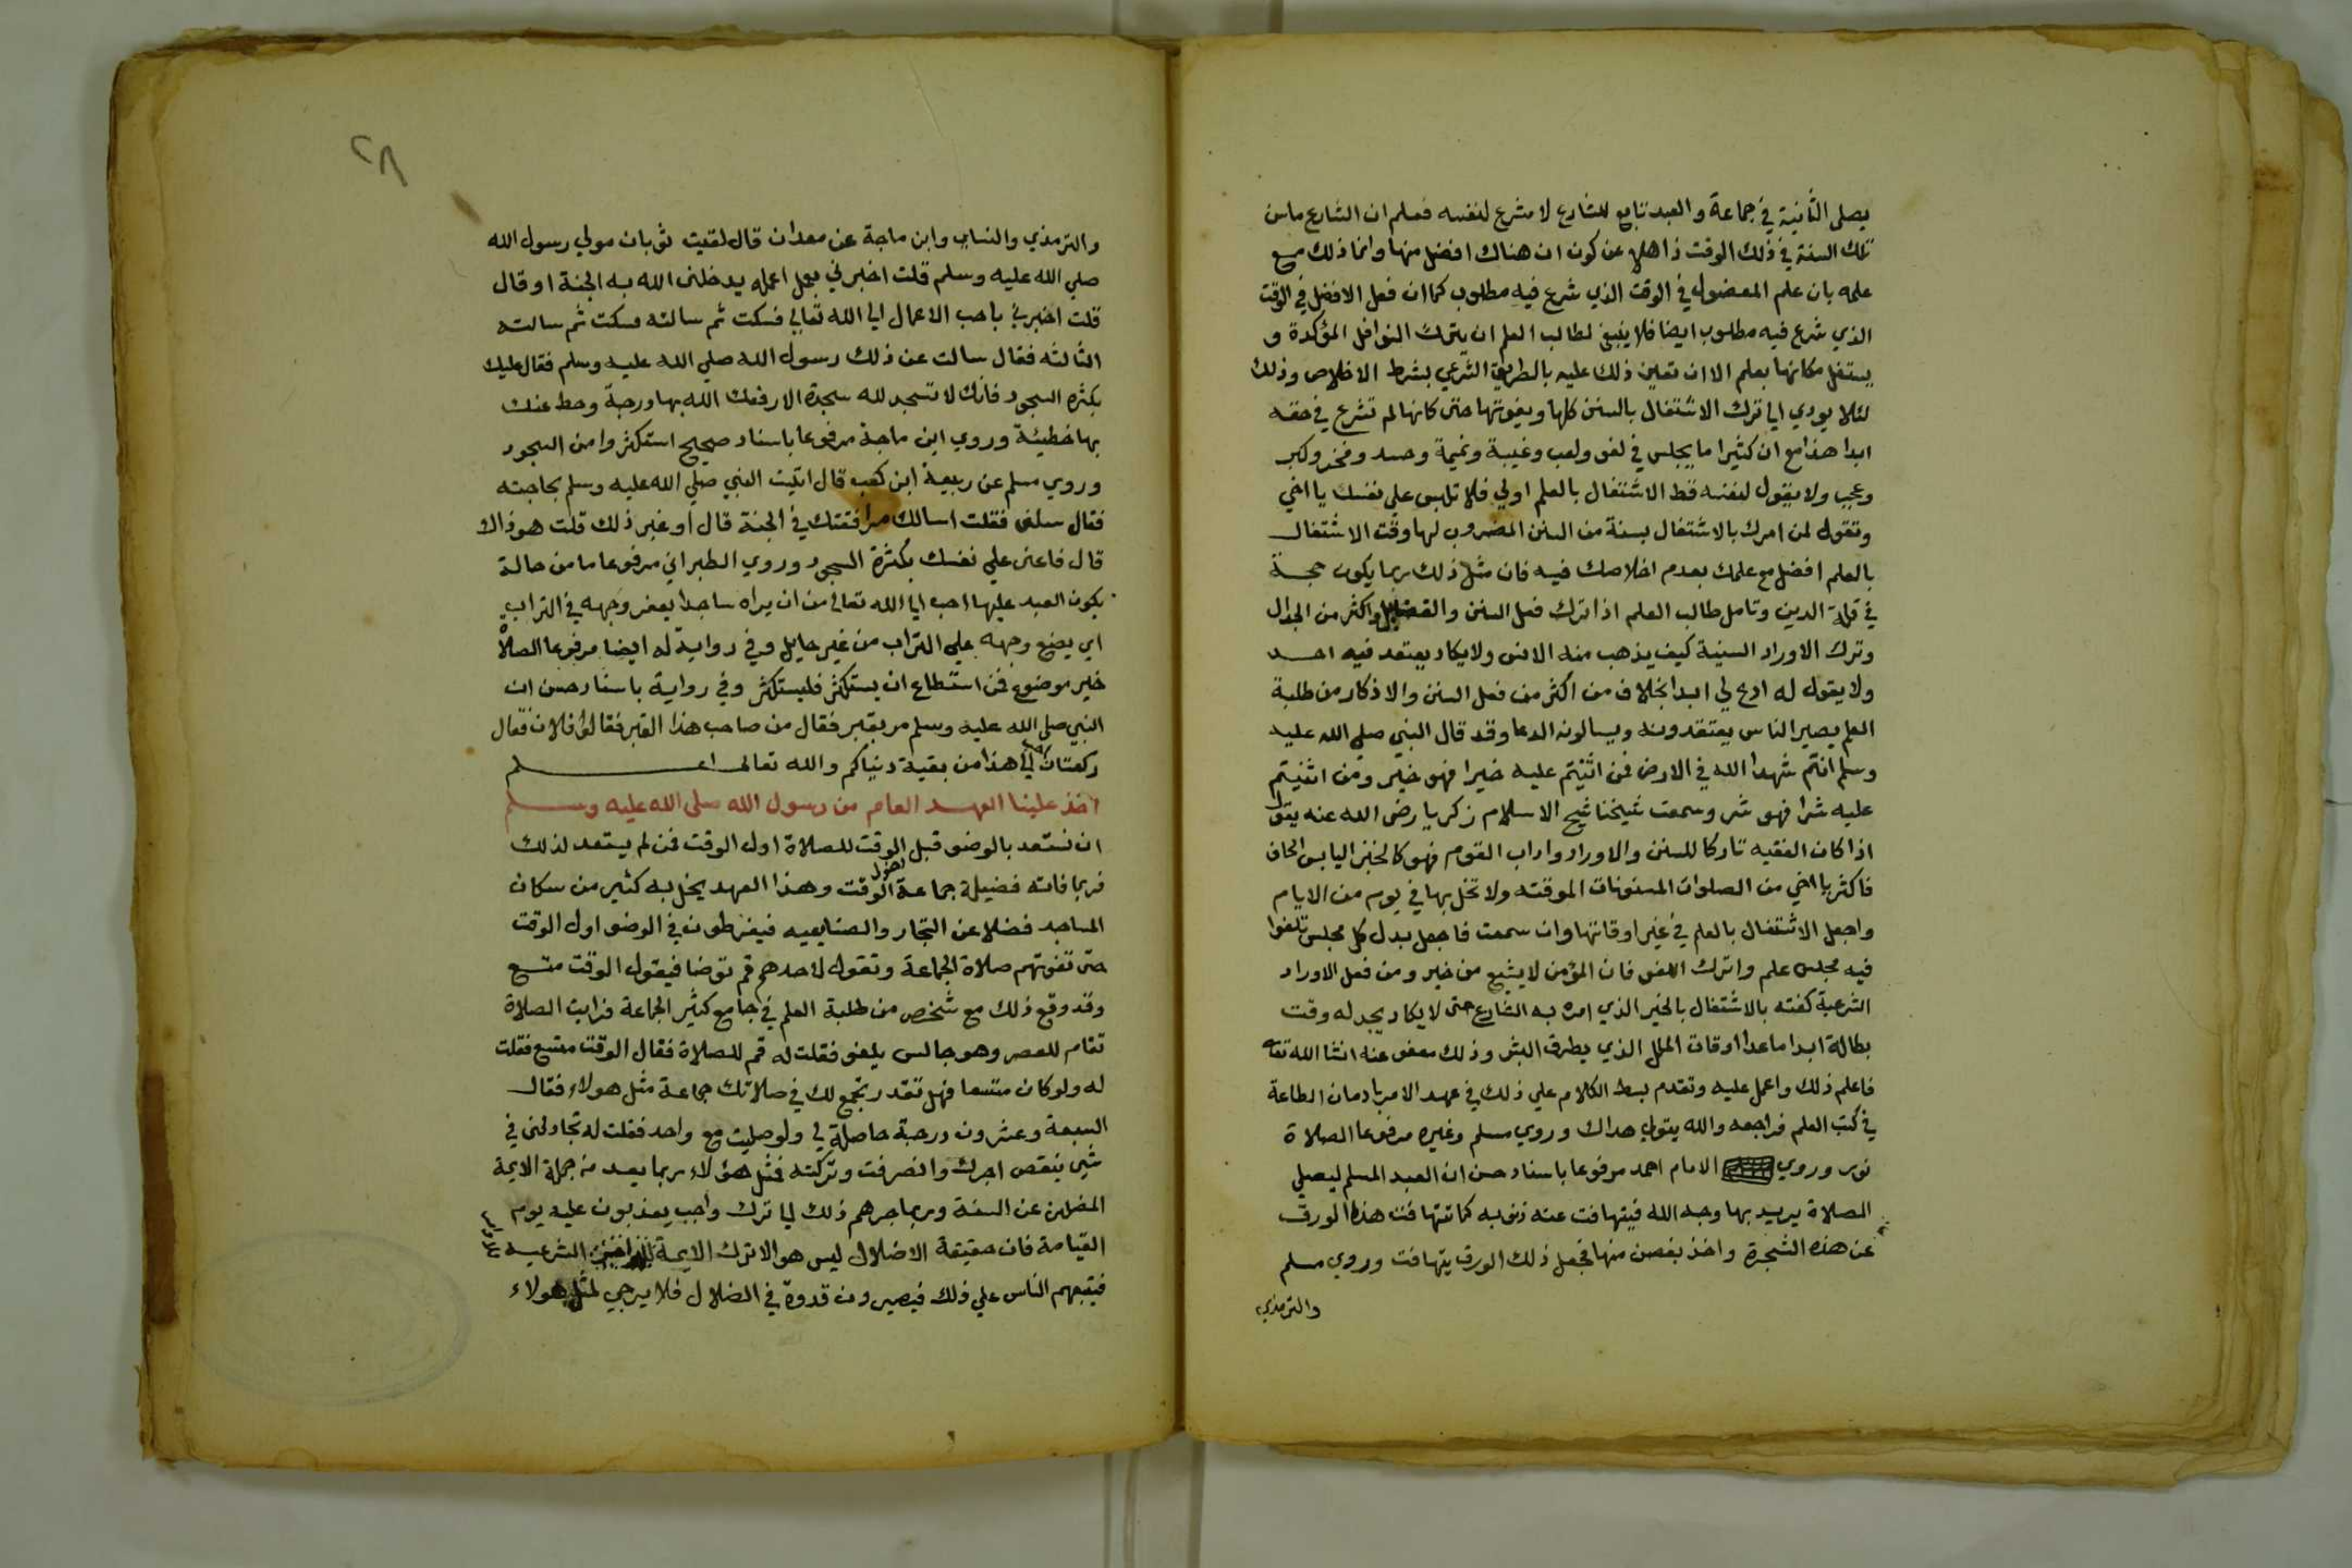 يصلي الثانية في جماعة والعبد تابع للشارع لا مشرع لنفسه فعلم ان الشارع ما سن
تلك السنة في ذلك الوقت ذاهلا عن كون ان هناك افضل منها وانما ذلك مع
علمه بان علم المفضول في الوقت الذي شرع فيه مطلوب كما ان فعل الافضل في الوقت
الذي شرع فيه مطلوب ايضا فلا ينبغي لطالب العلم ان يترك النوافل المؤكدة و
يستغل مكانها بعلم الا ان تعين ذلك عليه بالطريق الشرعي بشرط الاخلاص وذلك
لئلا يودي الي ترك الاشتغال بالسنن كلها ويفوتها حتى كانها لم تشرع في حقه
ابدا هذا مع ان كثيرا ما يجلس في لغو ولعب وغيبة ونميمة وحسد وفخر وكبر
وعجب ولا يقول لنفسه قط الاشتغال بالعلم اولي فلا تلبس علي نفسك يا اخي
وتقول لمن امرك بالاشتغال بسنة من السنن المضروب لها وقت الاشتغال
بالعلم افضل مع علمك بعدم اخلاصك فيه فان مثل ذلك ربما يكون حجة
في قلة الدين وتامل طالب العلم اذا ترك فعل السنن والفضايل واكثر من الجدال
وترك الاوراد السنية كيف يذهب منه الانس ولا يكاد يعتقد فيه احد
ولا يقول له ادع لي ابدا بخلاف من اكثر من فعل السنن والاذكار من طلبة
العلم يصير الناس يعتقدونه ويسالونه الدعا وقد قال النبي صلي الله عليه
وسلم انتم شهدا الله في الارض فمن اثنيتم عليه خيرا فهو خير ومن اثنيتم
عليه شرا فهو شر وسمعت شيخنا شيخ الاسلام زكريا رضى الله عنه يقول
اذا كان الفقيه تاركا للسنن والاوراد واداب القوم فهو كالخبز اليابس الحاف
فاكثر يا اخي من الصلوات المسنونات الموقته ولا تخل بها في يوم من الايام
واجعل الاشتغال بالعلم في غير اوقاتها وان سمعت فاجعل بدل كل مجلس تلغوا
فيه مجلس علم واترك اللغو فان المؤمن لا يشبع من خير ومن فعل الاوراد
الشرعية كفته بالاشتغال بالخير الذي امره به الشارع حتى لا يكاد يجد له وقت
بطالة ابدا ما عدا اوقات الملل الذي يطرق البشر وذلك معفو عنه انشا الله تعا
فاعلم ذلك واعمل عليه وتقدم بسط الكلام علي ذلك في عهد الامر بادمان الطاعة
في كتب العلم فراجعه والله يتولي هداك وروي مسلم وغيره مرفوعا الصلاة
نور وروي الامام احمد مرفوعا باسناد حسن ان العبد المسلم ليصلي
الصلاة يريد بها وجه الله فيتهافت عنه ذنوبه كما تتهافت هذا الورق
عن هذه الشجرة واخذ بغصن منها فجعل ذلك الورق يتهافت وروي مسلم
والترمذي
٢٨
والترمذي والنساي وابن ماجة عن معدان قال لقيت ثوبان مولي رسول الله
صلي الله عليه وسلم قلت اخبرني بعمل اعمله يدخلني الله به الجنة او قال
قلت اخبرني باحب الاعمال الي الله تعالي فسكت ثم سالته فسكت ثم سالته
الثالثه فقال سالت عن ذلك رسول الله صلي الله عليه وسلم فقال عليك
بكثره السجود فانك لا تسجد لله سجدة الا رفعك الله بها درجة وحط عنك
بها خطيئة وروي ابن ماجة مرفوعا باسناد صحيح استكثروا من السجود
وروي مسلم عن ربيعة ابن كعب قال اتيت النبي صلي الله عليه وسلم بحاجته
فقال سلني فقلت اسالك مرافقتك في الجنة قال او غير ذلك قلت هو ذاك
قال فاعني علي نفسك بكثرة السجود وروي الطبراني مرفوعا ما من حالة
يكون العبد عليها احب الي الله تعالي من ان يراه ساجدا يعفر وجهه في التراب
اي يضع وجهه علي التراب من غير حايل وفي رواية له ايضا مرفوعا الصلاة
خير موضوع فمن استطاع ان يستكثر فليستكثر وفي رواية باسناد حسن ان
النبي صلى الله عليه وسلم مر بقبر فقال من صاحب هذا القبر فقالوا فلان فقال
ركعتان احب الي هذا من بقية دنياكم والله تعالى اعلم
اخذ علينا العهد العام من رسول الله صلى الله عليه وسلم
ان نستعد بالوضو قبل الوقت للصلاة اول الوقت فمن لم يستعد لذلك
فربما فاته فضيلة جماعة اول الوقت وهذا العهد يخل به كثير من سكان
المساجد فضلا عن التجار والصنايعيه فيفرطون في الوضو اول الوقت
حتى تفوتهم صلاة الجماعة وتقول لاحدهم قم توضا فيقول الوقت متسع
وقد وقع ذلك مع شخص من طلبة العلم في جامع كثير الجماعة فرايت الصلاة
تقام للعصر وهو جالس يلغو فقلت له قم للصلاة فقال الوقت متسع فقلت
له ولو كان متسعا فهل تقدر تجمع لك في صلاتك جماعة مثل هولاء فقال
السبعة وعشرون درجة حاصلة لي ولو صليت مع واحد فقلت له تجادلني في
شي ينقص اجرك وانصرفت وتركته فمثل هؤلاء ربما يعد من جملة الايمة
المضلين عن السنة وربما جرهم ذلك لي ترك واجب يعذبون عليه يوم
القيامة فان حقيقة الاضلال ليس هو الا ترك الايمة الشرعيه
فيتبعهم الناس علي ذلك فيصيرون قدوة في الضلال فلا يرجي لمثل هولاء